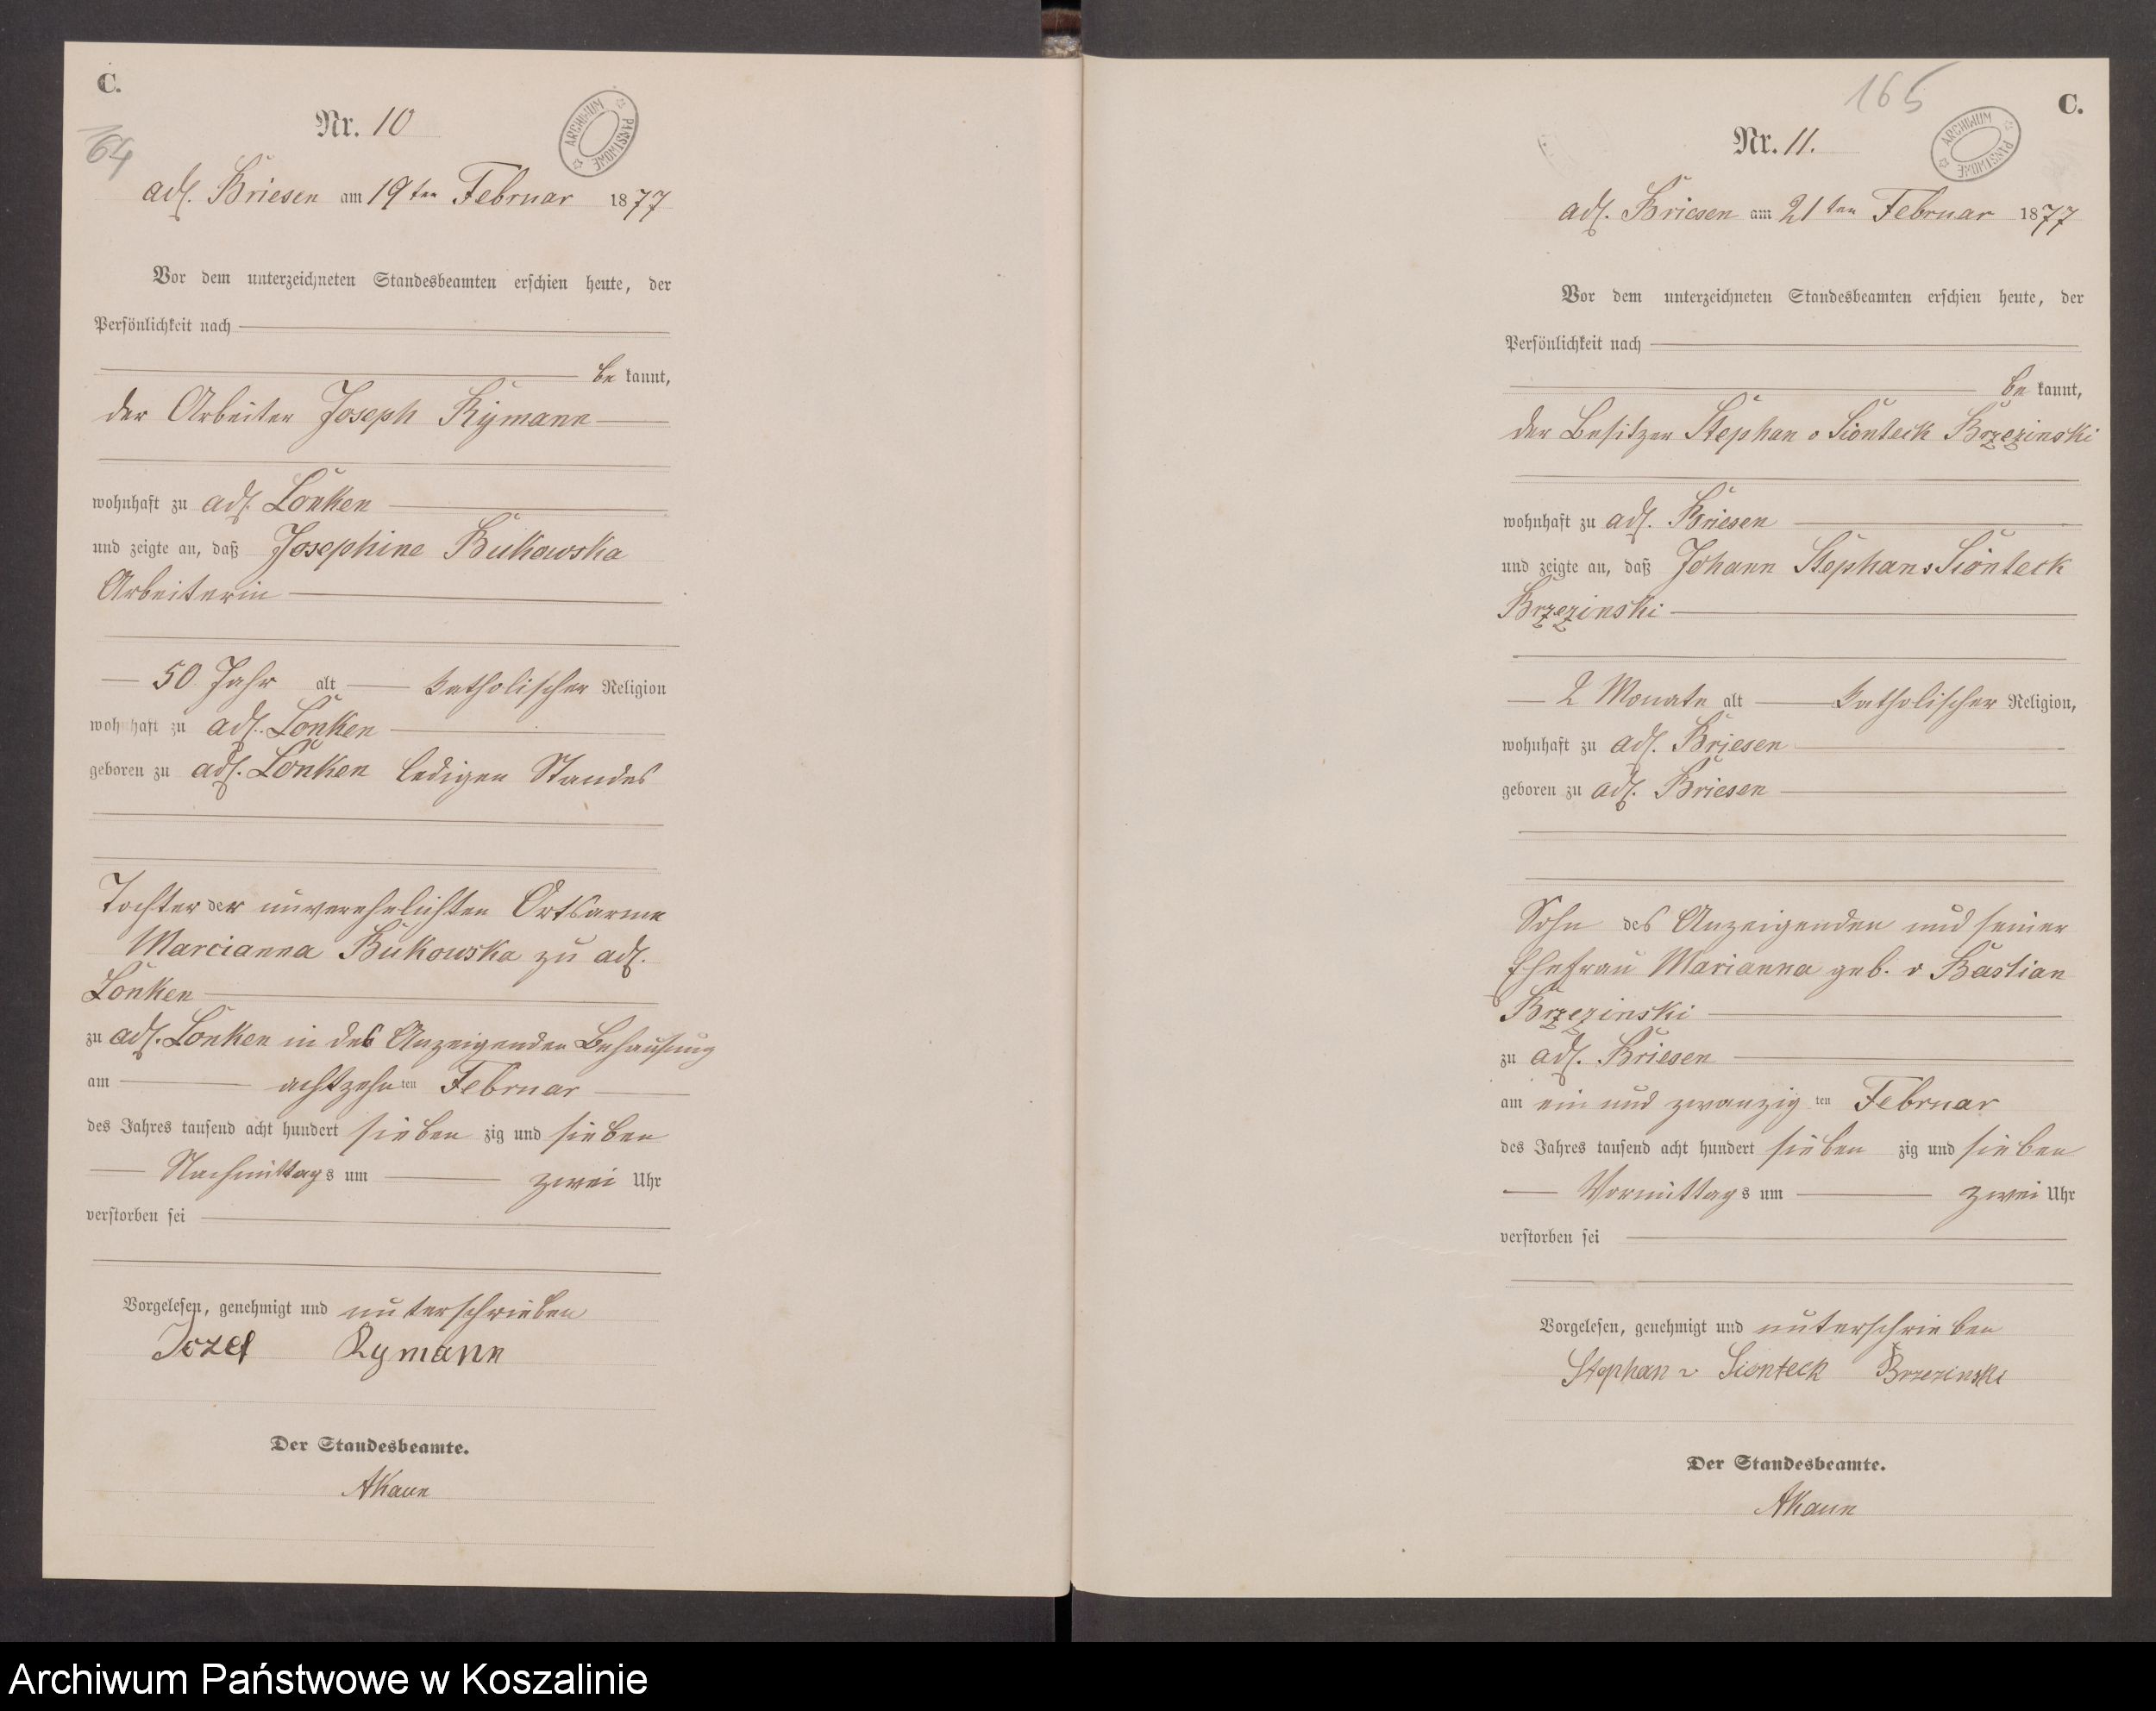 C.
Nr. 10
164
ARCHIWUM PAŃSTWOWE
adl. Briesen am 19ten Februar 1877
Vor dem unterzeichneten Standesbeamten erschien heute, der
Persönlichkeit nach
be kannt,
der Arbeiter Joseph Rymann
wohnhaft zu adl. Lonken
und zeigte an, daß Josephine Bukowska
Arbeiterin
50 Jahr alt katholischer Religion
wohnhaft zu adl. Lonken
geboren zu adl. Lonken ledigen Standes
Tochter der unverehelichten Ortsarme
Marcianna Bukowska zu adl.
Lonken
zu adl. Lonken in des Anzeigenden Behausung
am achtzehn ten Februar
des Jahres tausend acht hundert sieben zig und sieben
Nachmittags um zwei Uhr
verstorben sei
Vorgelesen, genehmigt und unterschrieben
Jozef Rymann
Der Standesbeamte.
AKaun
165
C.
Nr. 11.
ARCHIWUM PAŃSTWOWE
adl. Briesen am 21ten Februar 1877
Vor dem unterzeichneten Standesbeamten erschien heute, der
Persönlichkeit nach
be kannt,
der Besitzer Stephan v Sionteck Brzezinski
wohnhaft zu adl. Briesen
und zeigte an, daß Johann Stephan v Sionteck
Brzezinski
2 Monate alt katholischer Religion,
wohnhaft zu adl. Briesen
geboren zu adl. Briesen
Sohn des Anzeigenden und seiner
Ehefrau Marianna geb. v Bastian
Brzezinski
zu adl. Briesen
am ein und zwanzig ten Februar
des Jahres tausend acht hundert sieben zig und sieben
Vormittags um zwei Uhr
verstorben sei
Vorgelesen, genehmigt und unterschrieben
Stephan v Sionteck Brzezinski
Der Standesbeamte.
AKaun
Archiwum Państwowe w Koszalinie